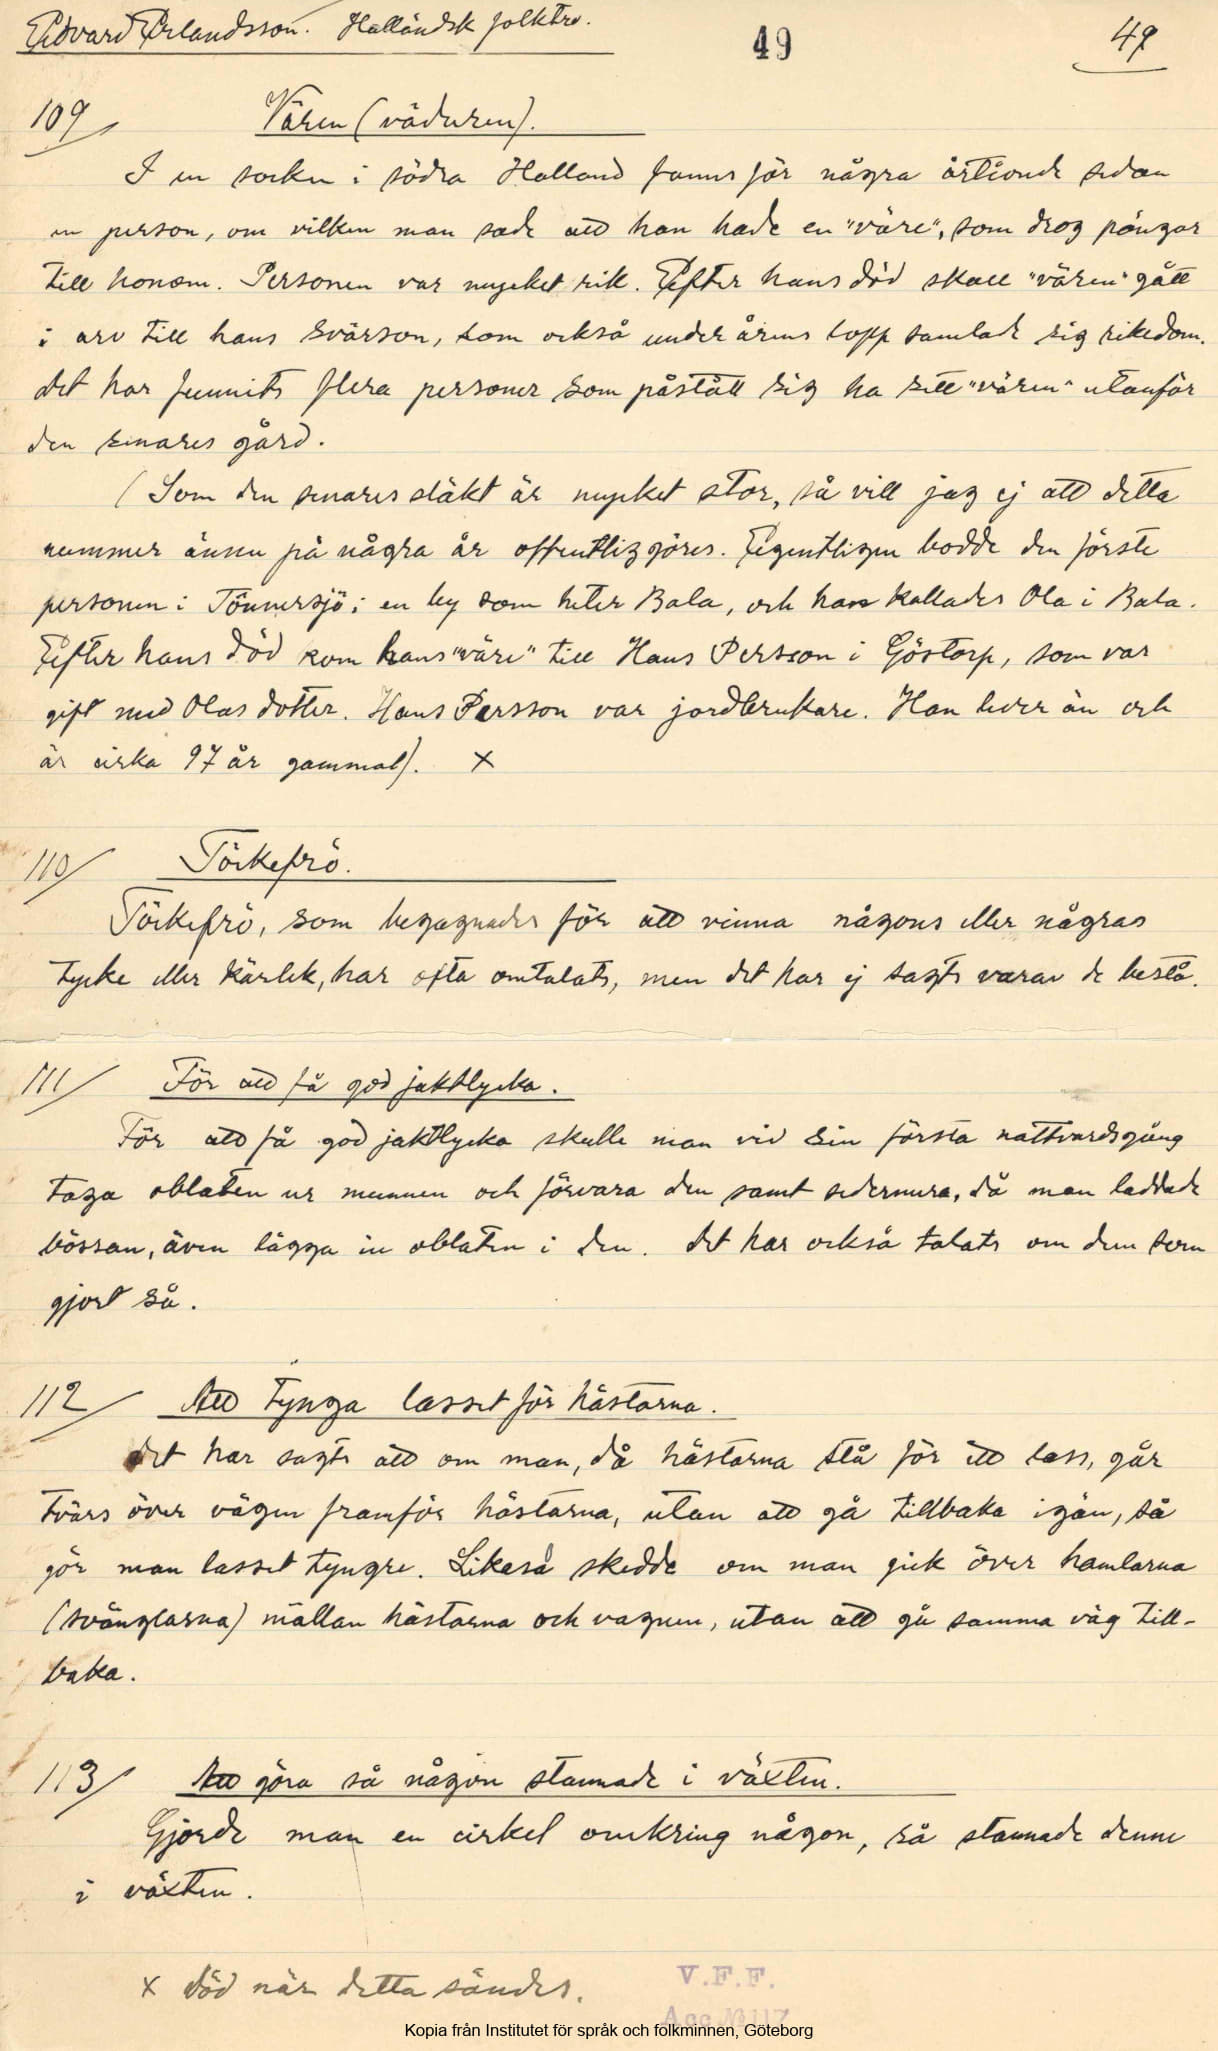 Edvard Erlandsson. Halländsk folktro.
49
49
109/ Vären (väduren).
I en socken i södra Halland fanns för några årtionde sedan
en person, om vilken man sade att han hade en "väre", som drog pängar
till honom. Personen var mycket rik. Efter hans död skall "vären" gått
i arv till hans svärson, som också under årens lopp samlade sig rikedom.
Det har funnits flera personer som påstått sig ha sett "vären" utanför
den senares gård.
(Som den senares släkt är mycket stor, så vill jag ej att detta
nummer ännu på några år offentliggöres. Egentligen bodde den förste
personen i Tönnersjö i en by som heter Bala, och han kallades Ola i Bala.
Efter hans död kom hans "väre" till Hans Persson i Göstorp, som var
gift med Olas dotter. Hans Persson var jordbrukare. Han lever än och
är cirka 97 år gammal). x
110/ Töckefrö.
Töckefrö, som begagnades för att vinna någons eller några s
tycke eller kärlek, har ofta omtalats, men det har ej sagts varav de bestå.
111/ För att få god jaktlycka.
För att få god jaktlycka skulle man vid sin första nattvardsgång
taga oblaten ur munnen och förvara den samt sedermera, då man laddade
bössan, även lägga in oblaten i den. Det har också talats om dem som
gjort så.
112/ Att tynga lasset för hästarna.
Det har sagts att om man, då hästarna stå för ett lass, går
tvärs över vägen framför hästarna, utan att gå tillbaka igän, så
gör man lasset tyngre. Likaså skedde om man gick över hamlarna
(svänglarna) mällan hästarna och vagnen, utan att gå samma väg till-
baka.
113/ Att göra så någon stannade i växten.
Gjorde man en cirkel omkring någon, så stannade denne
i växten.
x död när detta sändes.
V.F.F.
Acc № 117
Kopia från Institutet för språk och folkminnen, Göteborg